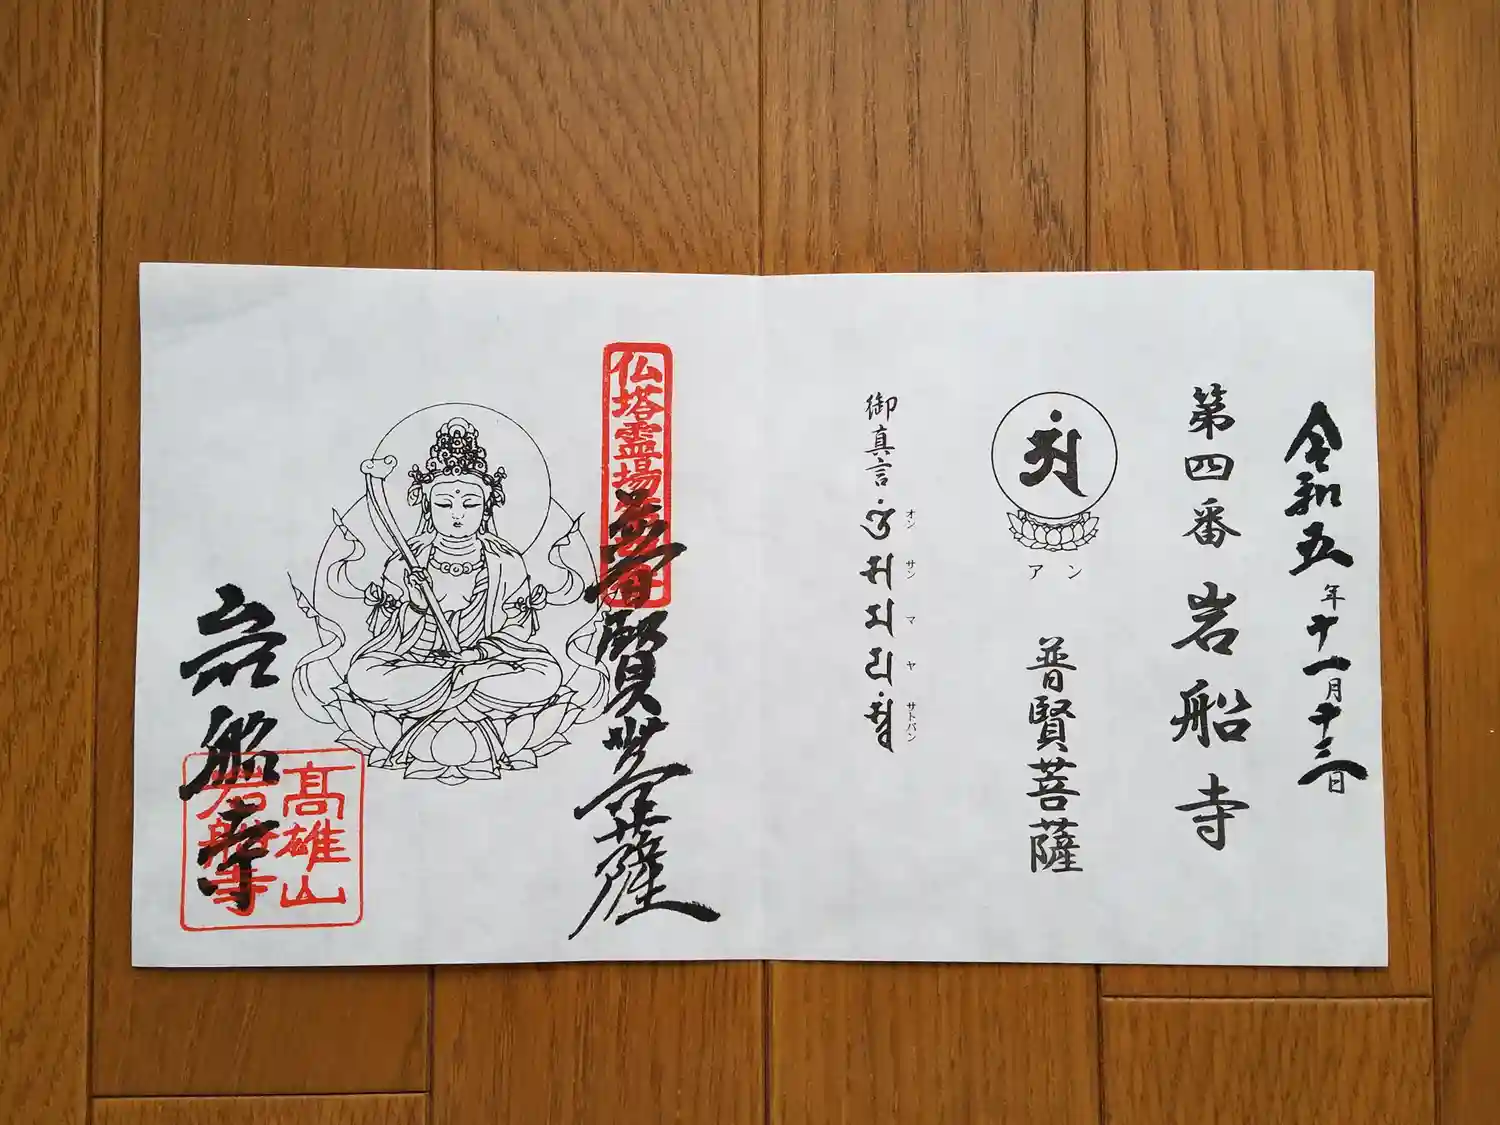 令和五年十一月十三日
第四番 岩船寺
アン
普賢菩薩
御真言
オン サン マ ヤ サトバン
仏塔霊場
普賢菩薩
岩船寺
高雄山
岩船寺